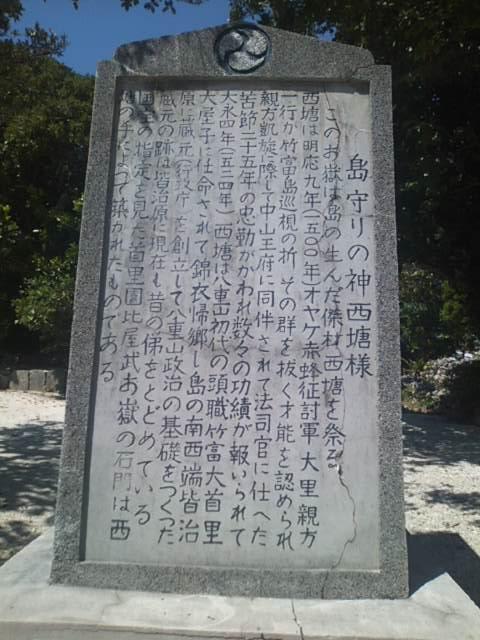 島守りの神西塘様
このお嶽は島の生んだ傑材西塘を祭る
西塘は明応九年(一五〇〇年オヤケ赤蜂征討軍大里親方
一行が竹富島巡視の折その群を抜く才能を認められ
親方凱旋に際して中山王府に同伴されて法司官に仕へた
苦節二十五年の忠勤がかわれ数々の功績が報いられて
大永四年(一五二四年)西塘は八重山初代の頭職竹富大首里
大屋子に任命されて錦衣帰郷し島の南西端皆治
原に蔵元(行政庁)を創立して八重山政治の基礎をつくった
蔵元の跡は皆治原に現在も昔の俤をとどめている
国宝の指定を見た首里園比屋武お嶽の石門は西
塘の手によって築かれたものである